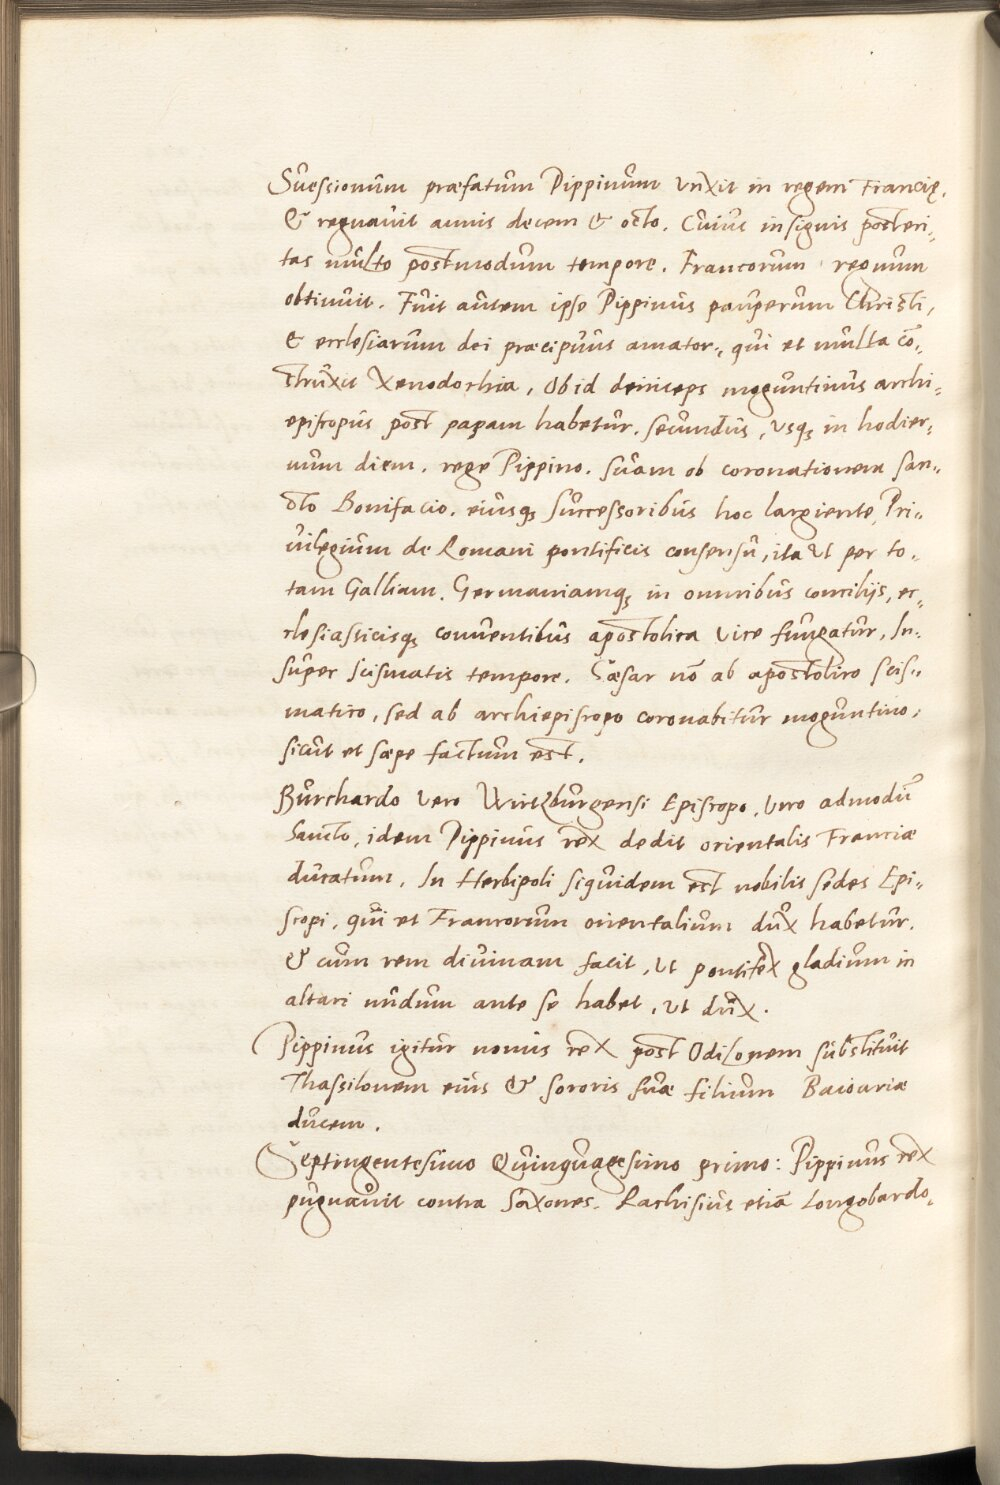 Suessionum præfatum Pippinum vnxit in regem Francię.
& regnauit annis decem & octo. Cuius insignis posteri„
tas multo postmodum tempore. Francorum regnum
obtinuit. Fuit autem ipse Pippinus pauperum Christi,
& ecclesiarum dei præcipuus amator„ qui et multa cō„
struxit Xenodochia, Ob id deinceps moguntinus archi„
episcopus post papam habetur. secundus, vsqꝫ in hodier„
num diem. rege Pippino. suam ob coronationem san„
cto Bonifacio. eiusqꝫ successoribus hoc largiente, Pri„
uilegium de Romani pontificis consensu, ita ut per to„
tam Galliam. Germaniamqꝫ in omnibus concilijs, ec„
clesiasticisqꝫ conuentibus apostolica vice fungatur. In„
super scismatis tempore. Cæsar nō ab apostolico scis„
matico, sed ab archiepiscopo coronabitur moguntino,
sicut et sæpe factum est.
Burchardo vero Wirtzburgensi Episcopo, viro admodū
Sancto, idem Pippinus rex dedit orientalis Franciæ
ducatum. In Herbipoli siquidem est nobilis sedes Epi„
scopi, qui et Francorum orientalium dux habetur.
& cum rem diuinam facit, ut pontifex gladium in
altari nudum ante se habet, ut dux.
Pippinus igitur nouus rex post Odilonem substituit
Thassilonem eius & sororis suæ filium Baioariæ
ducem.
Septingentesimo Quinquagesimo primo: Pippinus rex
pugnauit contra Saxones. Rachisius etiā Longobardo„